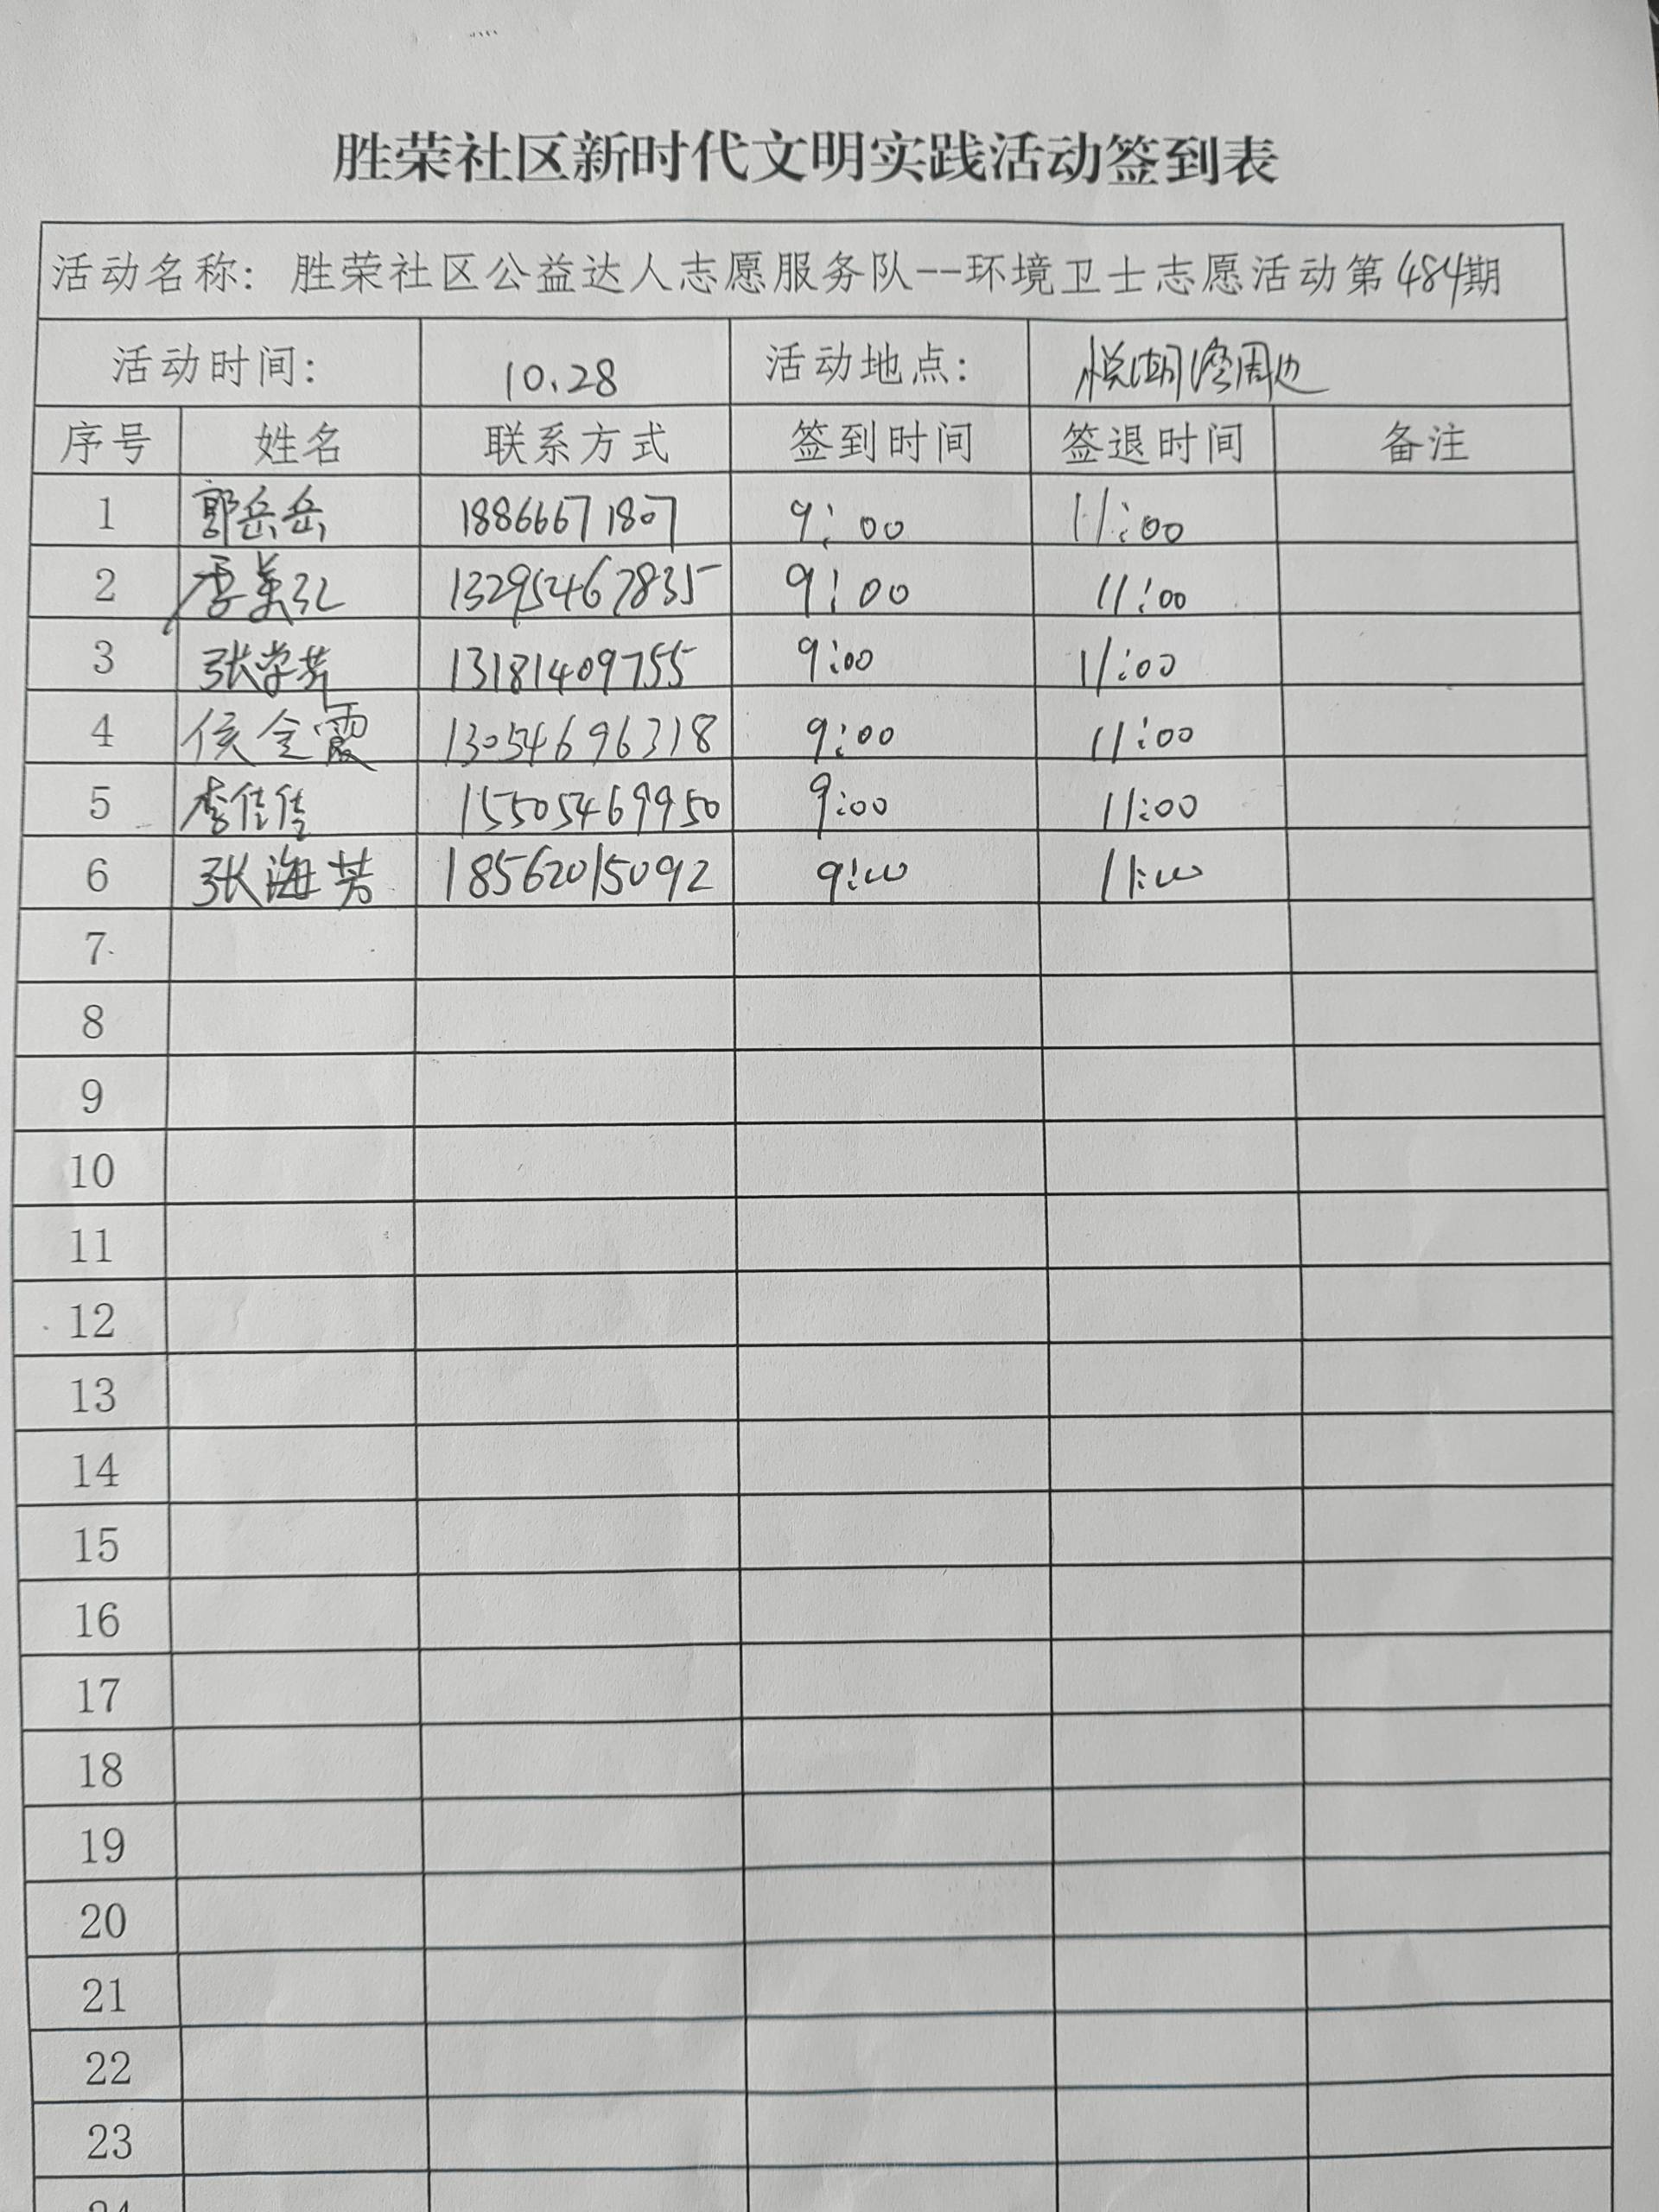 胜荣社区新时代文明实践活动签到表
活动名称: 胜荣社区公益达人志愿服务队--环境卫士志愿活动第484期
活动时间: 10.28 活动地点: 悦湖湾周边
序号 姓名 联系方式 签到时间 签退时间 备注
1 郭岳岳 18866671807 9:00 11:00
2 李美红 13295467835 9:00 11:00
3 张学芳 13181409755 9:00 11:00
4 侯金霞 13054696318 9:00 11:00
5 李佳佳 15505469950 9:00 11:00
6 张海芳 18562015092 9:00 11:00
7
8
9
10
11
12
13
14
15
16
17
18
19
20
21
22
23
24